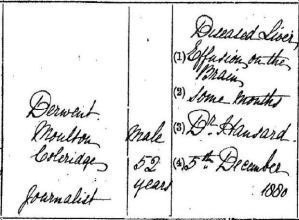 Derwent
Moulton
Coleridge
Journalist
Male
52
years
Diseased Liver
(1) Effusion on the
Brain
(2) Some months
(3) Dr. Hansard.
(4) 5th December
1880